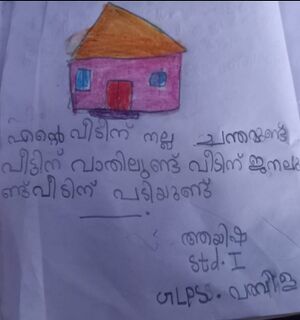 എന്റെ വീടിന് നല്ല ചന്തമുണ്ട്
വീട്ടിന് വാതിലുണ്ട് വീടിന് ജനലു
ണ്ട് വീടിന് പടിയുണ്ട്
ആയിഷ
Std. I
GLPS.